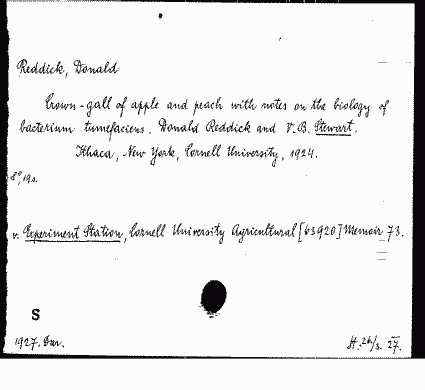 Reddick, Donald
Crown-gall of apple and peach with notes on the biology of
bacterium tumefaciens. Donald Reddick and V.B. Stewart.
Ithaca, New York, Cornell University, 1924.
8°, 19 s.
v. Experiment Station, Cornell University Agricultural [63920] Memoir 73.
S
1927. Dar. H. 26/3. 27.